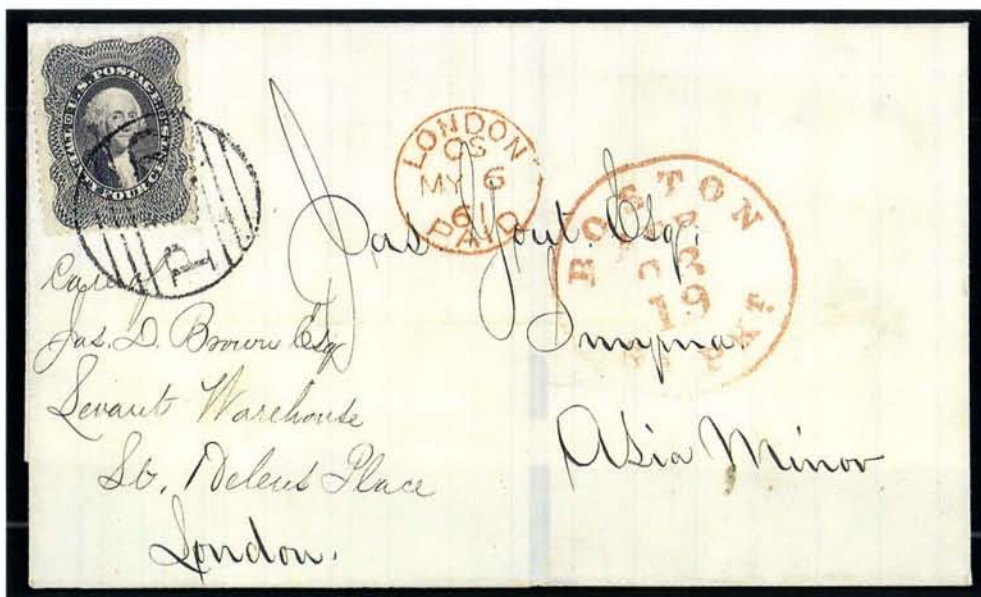 U.S. POSTAGE
TWENTY FOUR CENTS
LONDON
CS
MY 6
61
PAID
BOSTON
AP
23
19
PKT.
Jas Yout. Esq.
Smyrna.
Asia Minor
Care of
Jas. D. Brown Esq
Levant Warehouse
St. Helens Place
London.